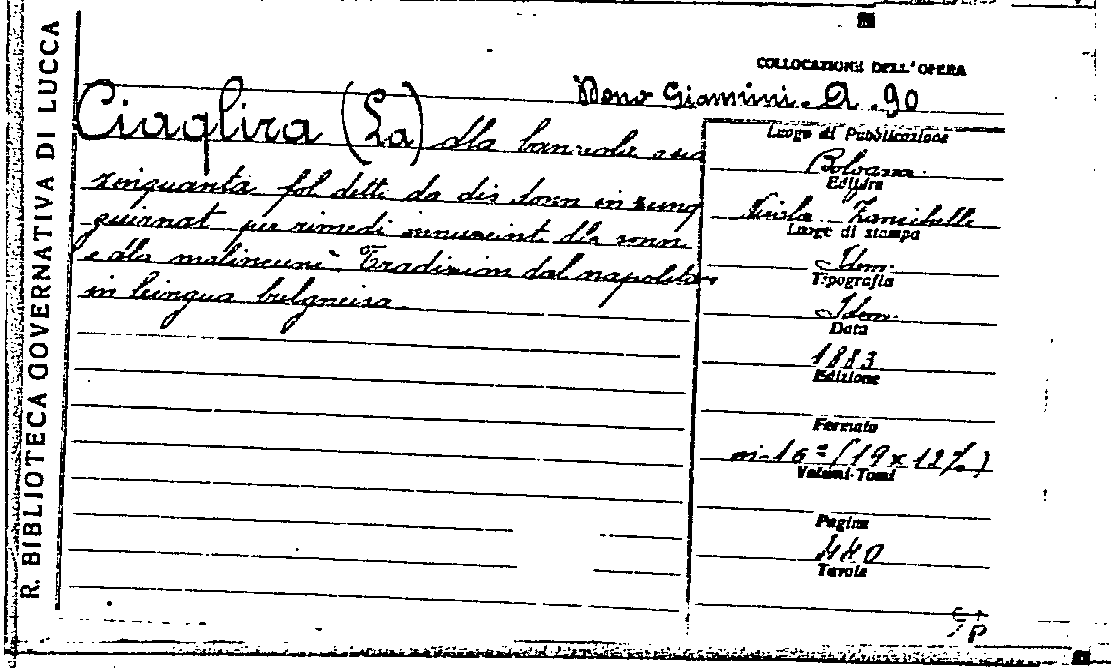 R. BIBLIOTECA GOVERNATIVA DI LUCCA
COLLOCAZIONE DELL'OPERA
Neno Giannini. A. 90
Ciaqlira (La) dla banzola
zinquanta fol detti da dis donn in zenq
per rimedi dla sonn
e dla malincuni. Tradizion dal napolitan
in léngua bulgneisa.
Luogo di Pubblicazione
Bologna.
Editore
Nicola Zanichelli
Luogo di stampa
Idem.
Tipografia
Idem.
Data
1883
Edizione
Formato
in-16º (19 x 12½)
Volumi-Tomi
Pagine
440
Tavole